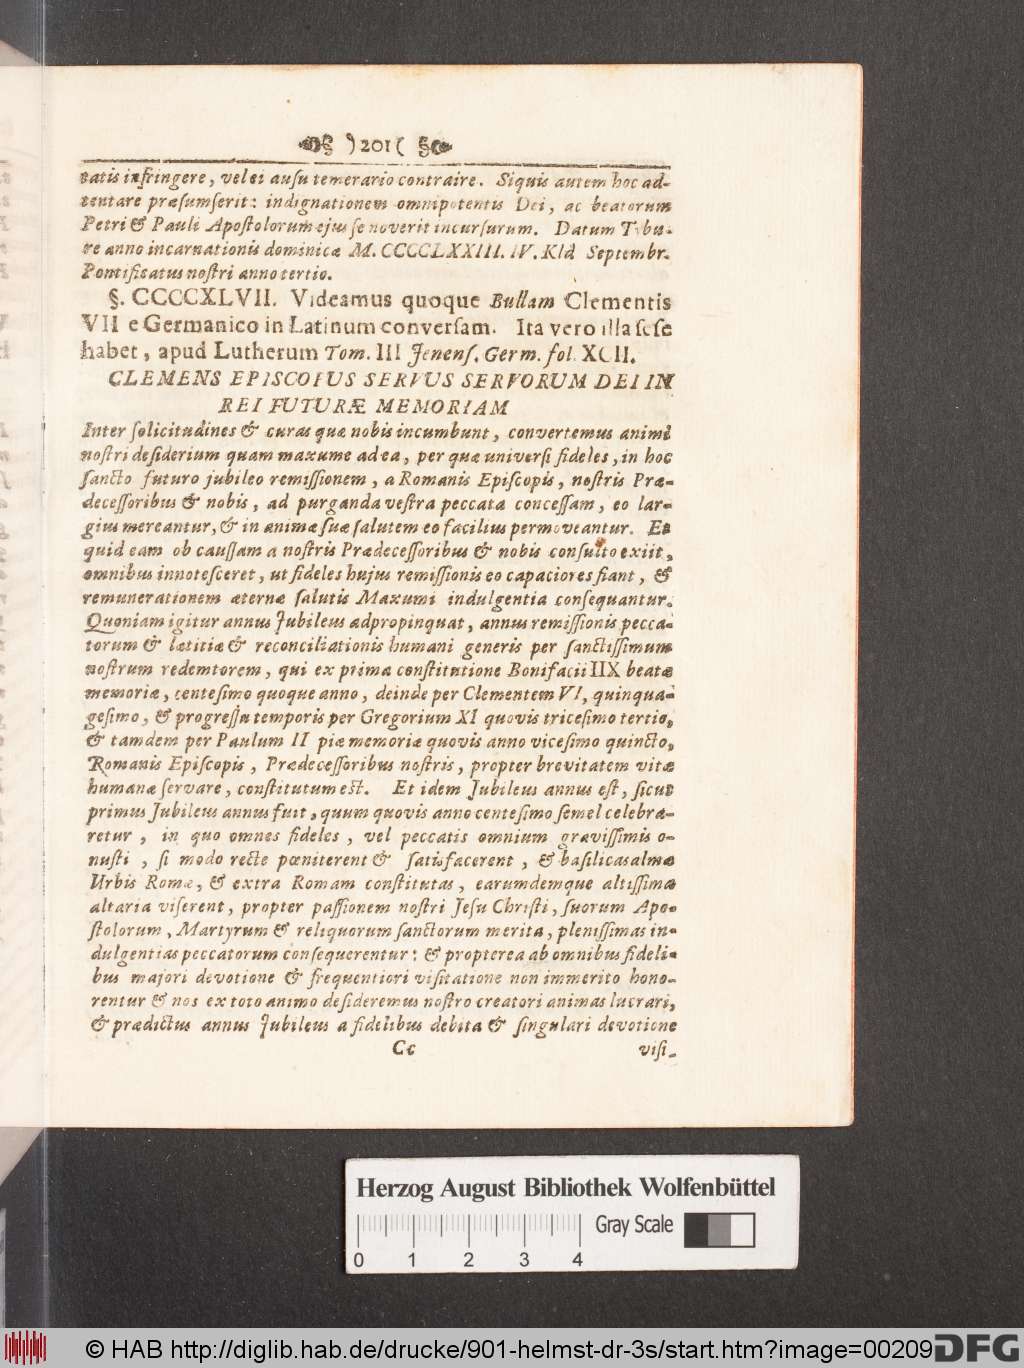 )201(
tatis infringere, vel ei ausu temerario contraire. Siquis autem hoc ad-
tentare præsumserit: indignationem omnipotentis Dei, ac beatorum
Petri & Pauli Apostolorum ejus se noverit incursurum. Datum Tybu-
re anno incarnationis dominicæ M. CCCCLXXIII. IV. Kld Septembr.
Pontificatus nostri anno tertio.
§. CCCCXLVII. Videamus quoque Bullam Clementis
VII e Germanico in Latinum conversam. Ita vero illa sese
habet, apud Lutherum Tom. III Jenens. Germ. fol. XCII.
CLEMENS EPISCOPUS SERVUS SERVORUM DEI IN
REI FUTURÆ MEMORIAM
Inter solicitudines & curas quæ nobis incumbunt, convertemus animi
nostri desiderium quam maxume ad ea, per quæ universi fideles, in hoc
sancto futuro jubileo remissionem, a Romanis Episcopis, nostris Præ-
decessoribus & nobis, ad purganda vestra peccata concessam, eo lar-
gius mereantur, & in animæ suæ salutem eo facilius permoveantur. Et
quid eam ob caussam a nostris Prædecessoribus & nobis consulto exiit,
omnibus innotesceret, ut fideles hujus remissionis eo capaciores fiant, &
remunerationem æternæ salutis Maxumi indulgentia consequantur.
Quoniam igitur annus Jubileus adpropinquat, annus remissionis pecca-
torum & lætitiæ & reconciliationis humani generis per sanctissimum
nostrum redemtorem, qui ex prima constitutione Bonifacii IIX beatæ
memoriæ, centesimo quoque anno, deinde per Clementem VI, quinqua-
gesimo, & progressu temporis per Gregorium XI quovis tricesimo tertio,
& tamdem per Paulum II piæ memoriæ quovis anno vicesimo quincto,
Romanis Episcopis, Prædecessoribus nostris, propter brevitatem vitæ
humanæ servare, constitutum est. Et idem Jubileus annus est, sicut
primus Jubileus annus fuit, quum quovis anno centesimo semel celebra-
retur, in quo omnes fideles, vel peccatis omnium gravissimis o-
nusti, si modo recte pœniterent & satisfacerent, & basilicas almæ
Urbis Romæ, & extra Romam constitutas, earumdemque altissima
altaria viserent, propter passionem nostri Jesu Christi, suorum Apo-
stolorum, Martyrum & reliquorum sanctorum merita, plenissimas in-
dulgentias peccatorum consequerentur: & propterea ab omnibus fideli-
bus majori devotione & frequentiori visitatione non immerito hono-
rentur & nos ex toto animo desideremus nostro creatori animas lucrari,
& prædictus annus Jubileus a fidelibus debita & singulari devotione
Cc visi-
Herzog August Bibliothek Wolfenbüttel
0 1 2 3 4 Gray Scale
© HAB http://diglib.hab.de/drucke/901-helmst-dr-3s/start.htm?image=00209
DFG